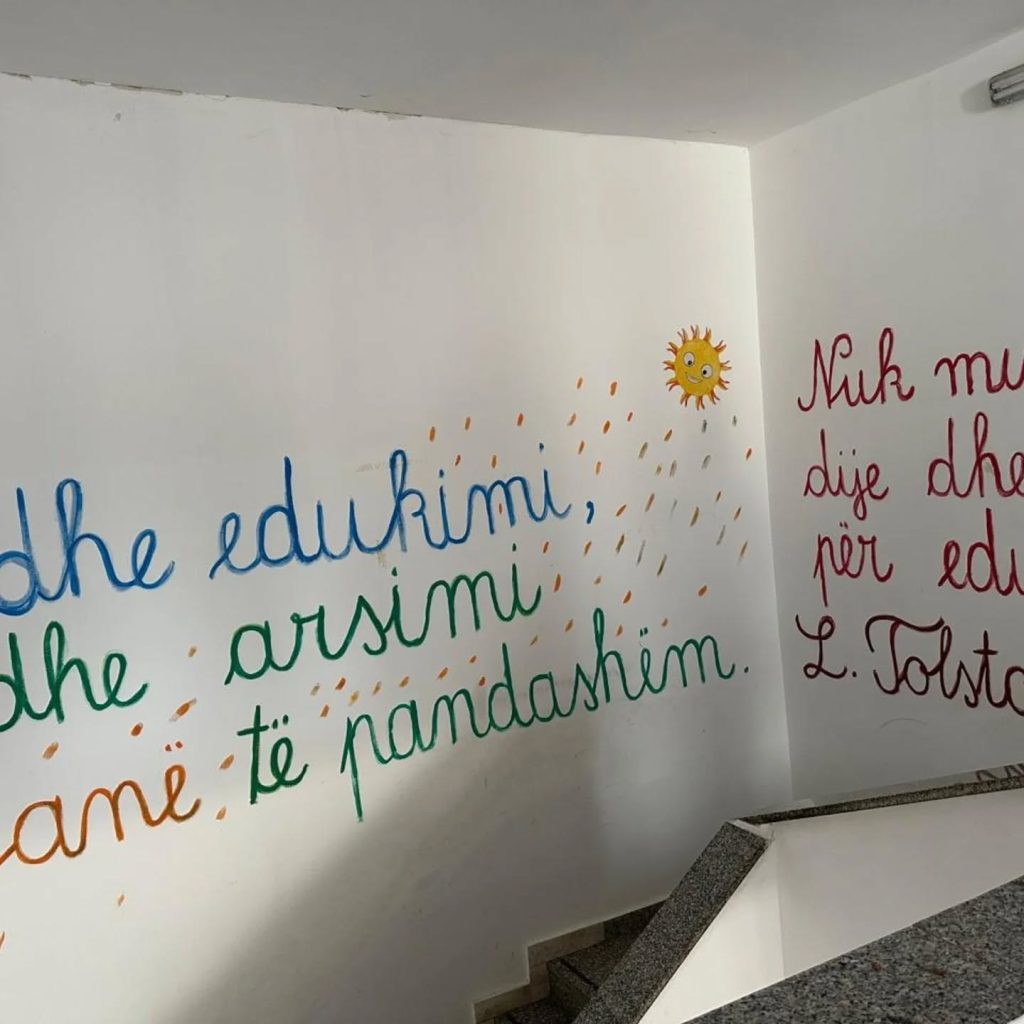 dhe edukimi,
dhe arsimi
janë të pandashëm.
Nuk mu
dije dhe
për edu
L. Tolsto